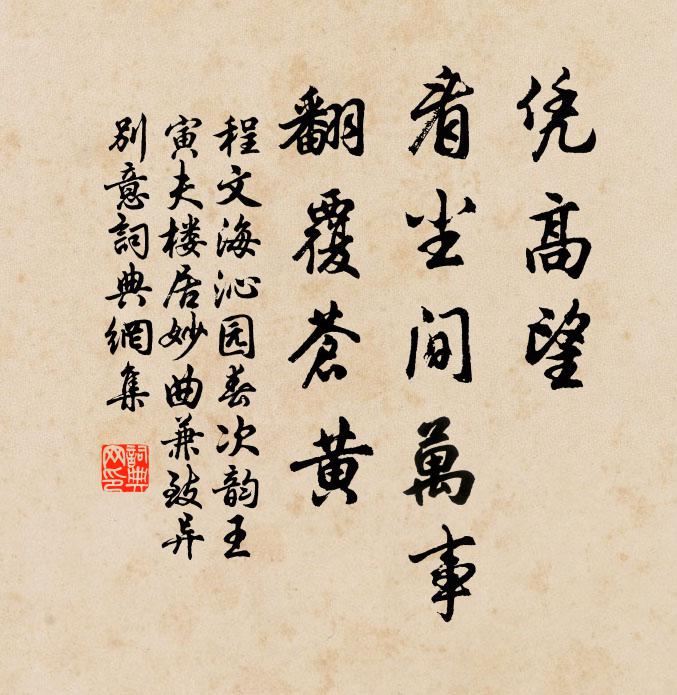 凭高望
看尘间萬事
翻覆蒼黄
程文海沁园春次韵王
寅夫楼居妙曲兼致异
别意詞典網集
詞典网印